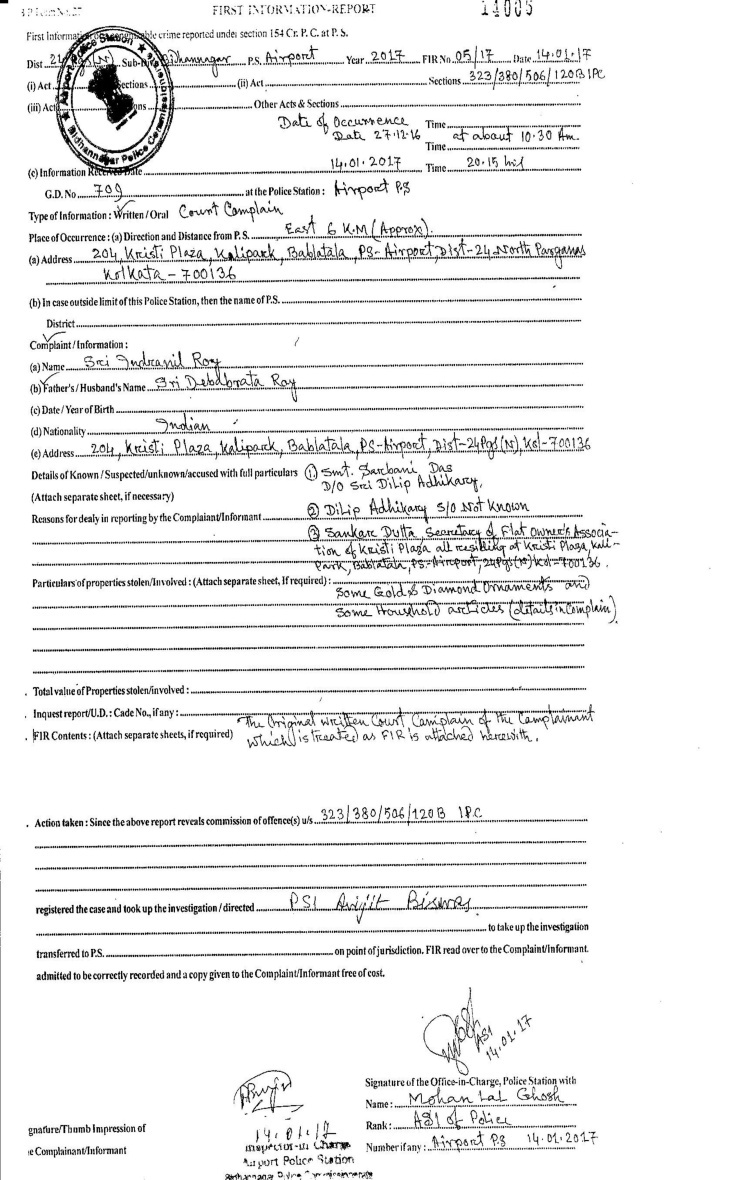 FIRST INFORMATION-REPORT
14005
First Information of cognizable crime reported under section 154 Cr. P. C. at P. S.
Dist 24 (N) Sub-Div. Bidhannagar P.S. Airport Year 2017 FIR No. 05/17 Date 14.01.17
(i) Act Sections (ii) Act Sections 323/380/506/120B IPC
(iii) Act Other Acts & Sections
Airport Police Station
Bidhannagar Police Commissionerate
Date of Occurrence Time
Date 27.12.16 at about 10.30 Am.
Time
(c) Information Received Date 14.01.2017 Time 20.15 hrs
G.D. No 709 at the Police Station : Airport PS
Type of Information : Written / Oral Court Complain
Place of Occurrence : (a) Direction and Distance from P. S. East 6 K.M (Approx).
(a) Address 204, Kristi Plaza, Kalipark, Bablatala, PS-Airport, Dist-24 North Parganas
Kolkata - 700136
(b) In case outside limit of this Police Station, then the name of P.S.
District
Complaint / Information :
(a) Name Sri Indranil Roy
(b) Father's / Husband's Name Sri Debabrata Roy
(c) Date / Year of Birth
(d) Nationality Indian
(e) Address 204, Kristi Plaza, Kalipark, Bablatala, PS-Airport, Dist-24Pgs(N), Kol-700136
Details of Known / Suspected/unknown/accused with full particulars (1) Smt. Sarbani Das
D/O Sri Dilip Adhikary,
(Attach separate sheet, if necessary)
Reasons for dealy in reporting by the Complaiant/Informant (2) Dilip Adhikary S/O Not Known
(3) Sankar Dutta, Secretary of Flat Owner's Associa-
tion of Kristi Plaza all residing at Kristi Plaza, Kali-
Park, Bablatala, PS-Airport, 24Pgs(N) Kol-700136.
Particulars of properties stolen/Involved : (Attach separate sheet, If required) :
Some Gold & Diamond Ornaments and
Some Household articles (details in Complain)
. Total value of Properties stolen/involved :
. Inquest report/U.D. : Cade No., if any :
The Original written Court Complain of the Complainant
. FIR Contents : (Attach separate sheets, if required) which is treated as FIR is attached herewith.
. Action taken : Since the above report reveals commission of offence(s) u/s 323/380/506/120B IPC
registered the case and took up the investigation / directed PSI Avijit Biswas
to take up the investigation
transferred to P.S. on point of jurisdiction. FIR read over to the Complaint/Informant.
admitted to be correctly recorded and a copy given to the Complaint/Informant free of cost.
ASI
14.01.17
Signature of the Office-in-Charge, Police Station with
Name : Mohan Lal Ghosh
Rank : ASI of Police
Number if any : Airport PS 14.01.2017
14.01.17
Inspector-in Charge
Airport Police Station
Bidhannagar Police Commissionerate
gnature/Thumb Impression of
e Complainant/Informant